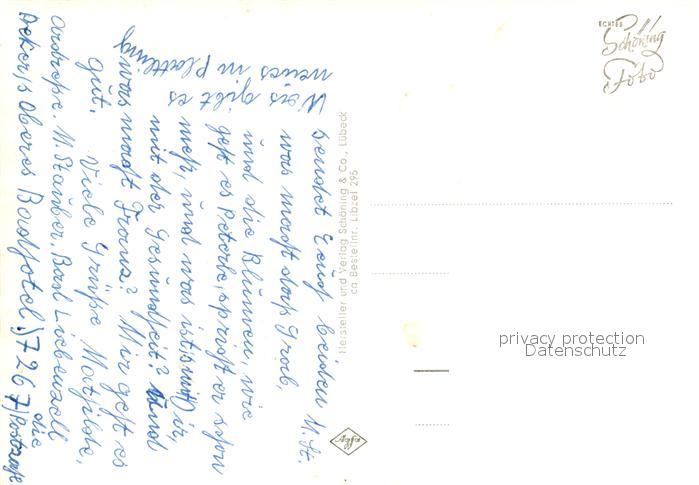 sendet Euch beiden M. St.
was macht das Grab,
und die Blumen, wie
geht es Peterle, spricht er schon
mehr, und was ist mit Dir,
mit der Gesundheit? Und
was macht Franz? Mir geht es
gut. Viele Grüße Mathilde,
M. Stauber. Bad Liebenzell
Oberes Badhotel. 7267
die
Postzahl
Was gibt es
neues in Plattling
Hersteller und Verlag Schöning & Co., Lübeck
ca Bestellnr. Libzel 295
Agfa
ECHTES
Schöning
Foto
privacy protection
Datenschutz